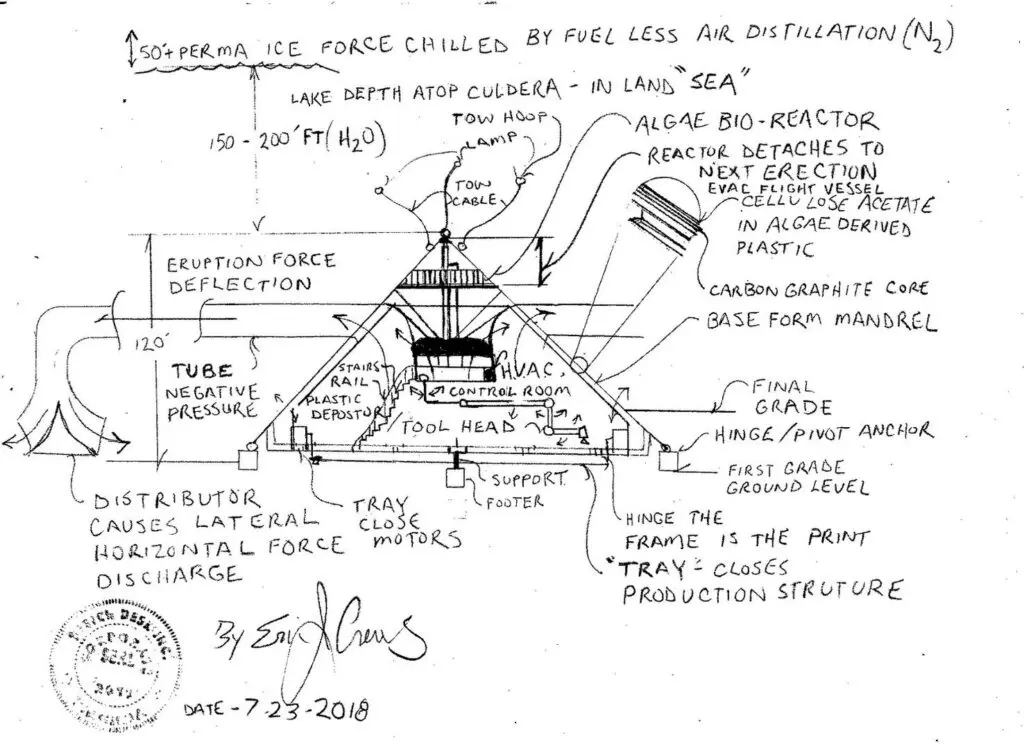 50'+ PERMA ICE FORCE CHILLED BY FUEL LESS AIR DISTILLATION (N2)
LAKE DEPTH ATOP CULDERA - IN LAND "SEA"
150 - 200' FT (H2O)
TOW HOOP
LAMP
TOW
CABLE
ALGAE BIO-REACTOR
REACTOR DETACHES TO
NEXT ERECTION
EVAC FLIGHT VESSEL
CELLULOSE ACETATE
IN ALGAE DERIVED
PLASTIC
CARBON GRAPHITE CORE
BASE FORM MANDREL
ERUPTION FORCE
DEFLECTION
120'
TUBE
NEGATIVE
PRESSURE
STAIRS
RAIL
PLASTIC
DEPOSTOR
HVAC.
CONTROL ROOM
TOOL HEAD
FINAL
GRADE
HINGE/PIVOT ANCHOR
FIRST GRADE
GROUND LEVEL
SUPPORT
FOOTER
DISTRIBUTOR
CAUSES LATERAL
HORIZONTAL FORCE
DISCHARGE
TRAY
CLOSE
MOTORS
HINGE THE
FRAME IS THE PRINT
"TRAY" - CLOSES
PRODUCTION STRUTURE
By Eric J Crews
DATE - 7-23-2018